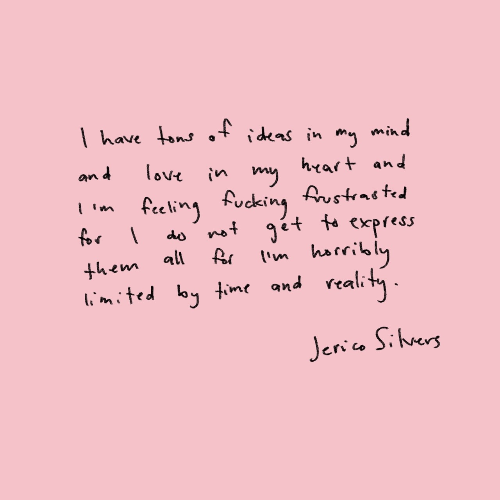 I have tons of ideas in my mind
and love in my heart and
I'm feeling fucking frustrasted
for I do not get to express
them all for I'm horribly
limited by time and reality.
Jerico Silvers